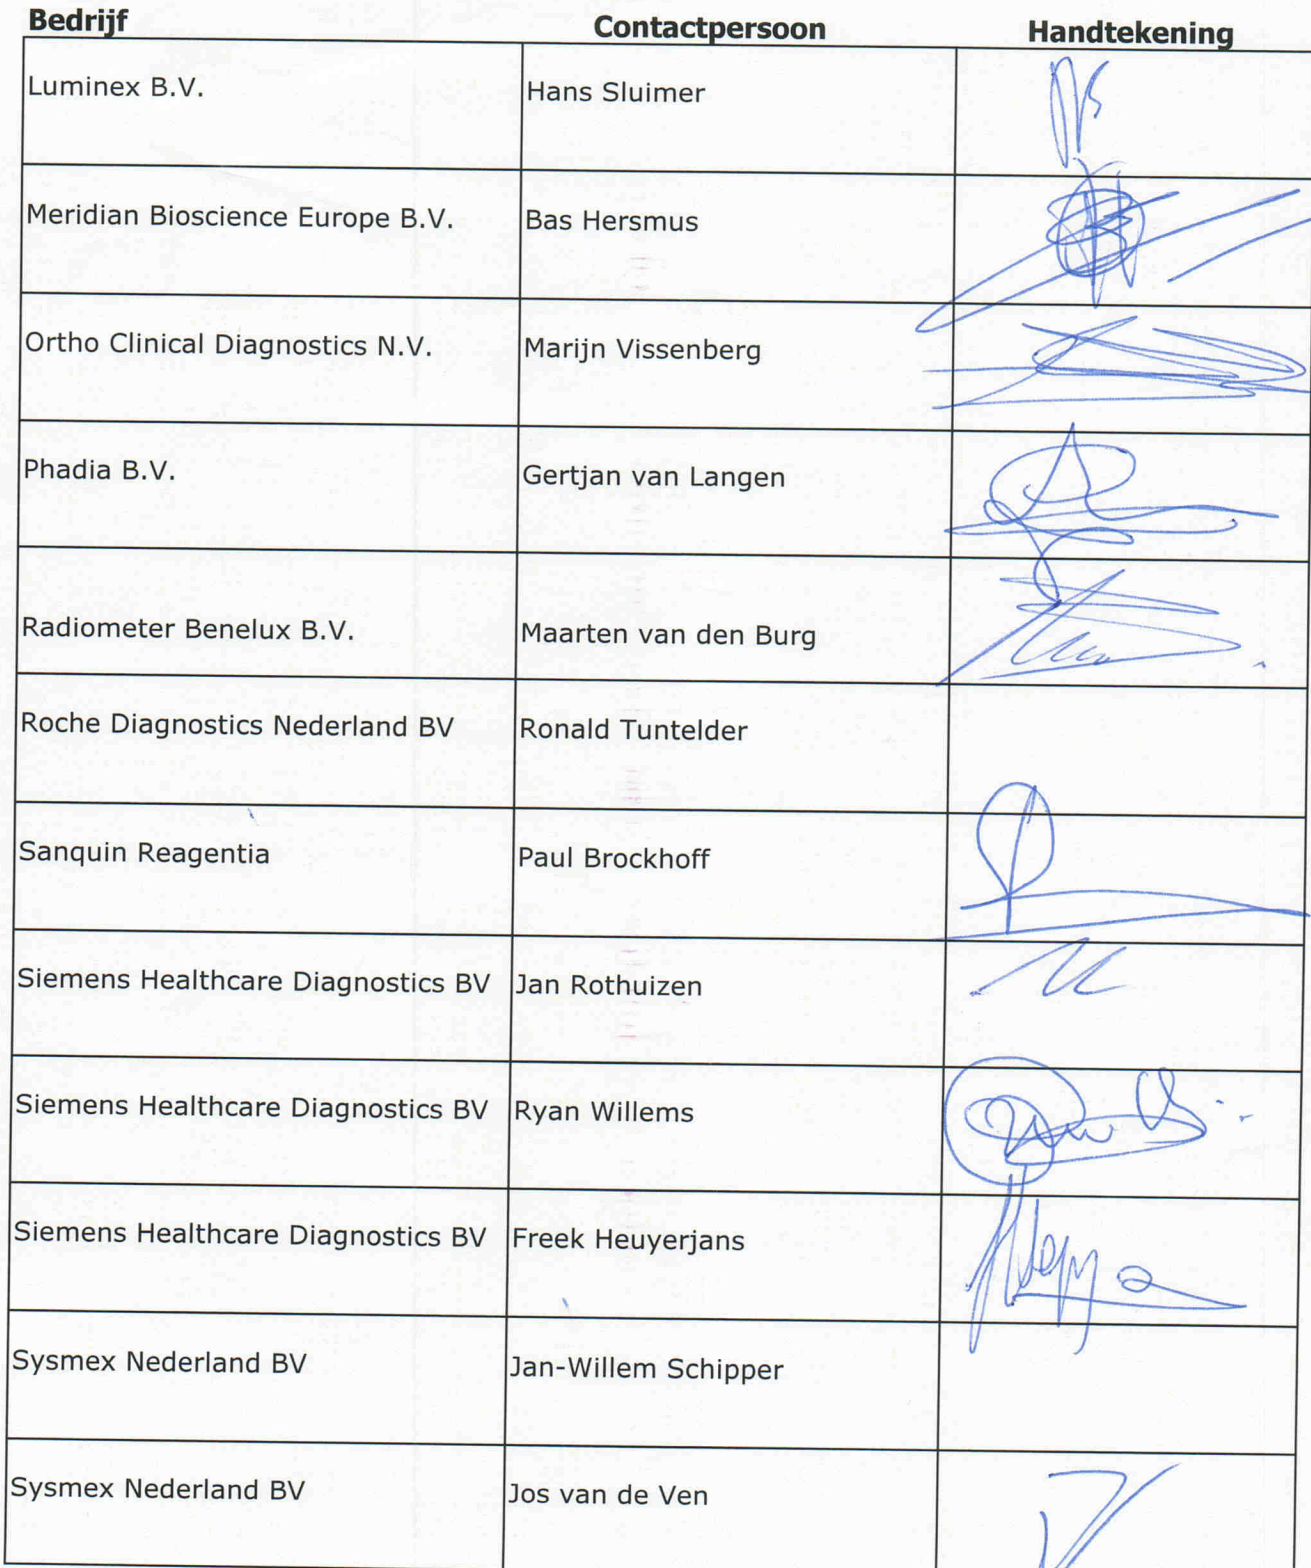 Bedrijf Contactpersoon Handtekening
Luminex B.V. Hans Sluimer
Meridian Bioscience Europe B.V. Bas Hersmus
Ortho Clinical Diagnostics N.V. Marijn Vissenberg
Phadia B.V. Gertjan van Langen
Radiometer Benelux B.V. Maarten van den Burg
Roche Diagnostics Nederland BV Ronald Tuntelder
Sanquin Reagentia Paul Brockhoff
Siemens Healthcare Diagnostics BV Jan Rothuizen
Siemens Healthcare Diagnostics BV Ryan Willems
Siemens Healthcare Diagnostics BV Freek Heuyerjans
Sysmex Nederland BV Jan-Willem Schipper
Sysmex Nederland BV Jos van de Ven